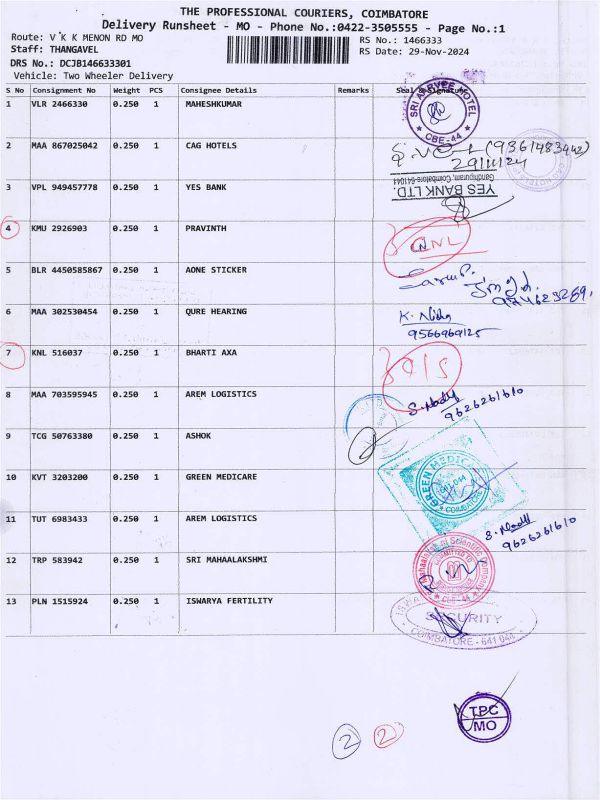 THE PROFESSIONAL COURIERS, COIMBATORE
Delivery Runsheet - MO - Phone No.:0422-3505555 - Page No.:1
Route: V K K MENON RD MO
RS No.: 1466333
Staff: THANGAVEL
RS Date: 29-Nov-2024
DRS No.: DCJB146633301
Vehicle: Two Wheeler Delivery
S No Consignment No Weight PCS Consignee Details Remarks Seal & Signature
1 VLR 2466330 0.250 1 MAHESHKUMAR
SRI AARVEE HOTEL
CBE-44
2 MAA 867025042 0.250 1 CAG HOTELS
(9361483442)
29/11/24
3 VPL 949457778 0.250 1 YES BANK
YES BANK LTD.
Gandhipuram, Coimbatore-641044
4 KMU 2926903 0.250 1 PRAVINTH
CNL
5 BLR 4450585867 0.250 1 AONE STICKER
6 MAA 302530454 0.250 1 QURE HEARING
K. Nisha
9566969125
7 KNL 516037 0.250 1 BHARTI AXA
8 MAA 703595945 0.250 1 AREM LOGISTICS
9626261610
9 TCG 50763380 0.250 1 ASHOK
10 KVT 3203200 0.250 1 GREEN MEDICARE
GREEN MEDIC
COIMBATORE
11 TUT 6983433 0.250 1 AREM LOGISTICS
9626261610
12 TRP 583942 0.250 1 SRI MAHAALAKSHMI
CBE-44
13 PLN 1515924 0.250 1 ISWARYA FERTILITY
SECURITY
COIMBATORE - 641 044
TPC
MO
2 2